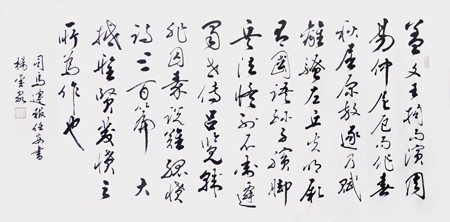 蓋文王拘而演周
易仲尼厄而作春
秋屈原放逐乃賦
離騷左丘失明厥
有國語孫子臏脚
兵法修列不韋遷
蜀世傳呂覽韓
非囚秦說難孤憤
詩三百篇大
抵聖賢發憤之
所為作也
司馬遷報任安書
楊雲